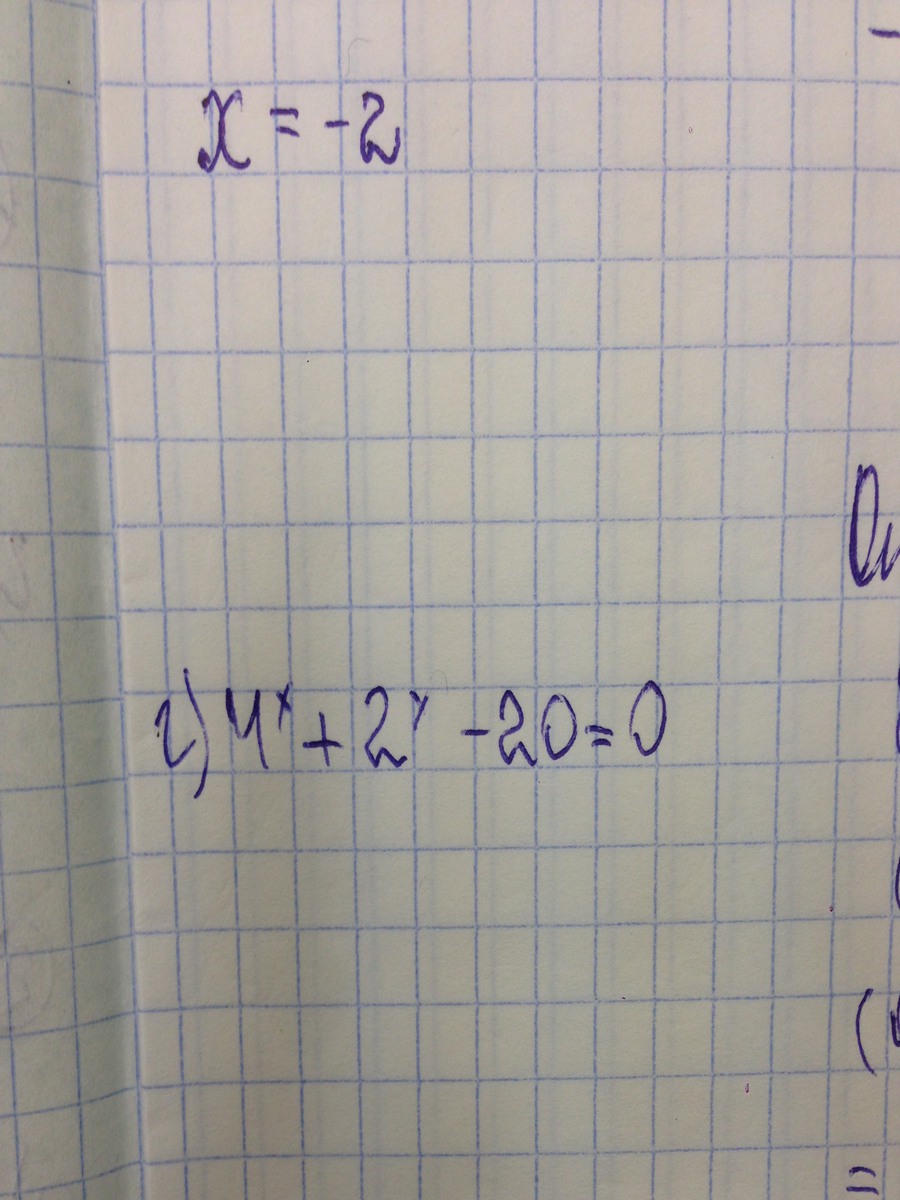 x = -2
г) 4ˣ + 2ˣ - 20 = 0